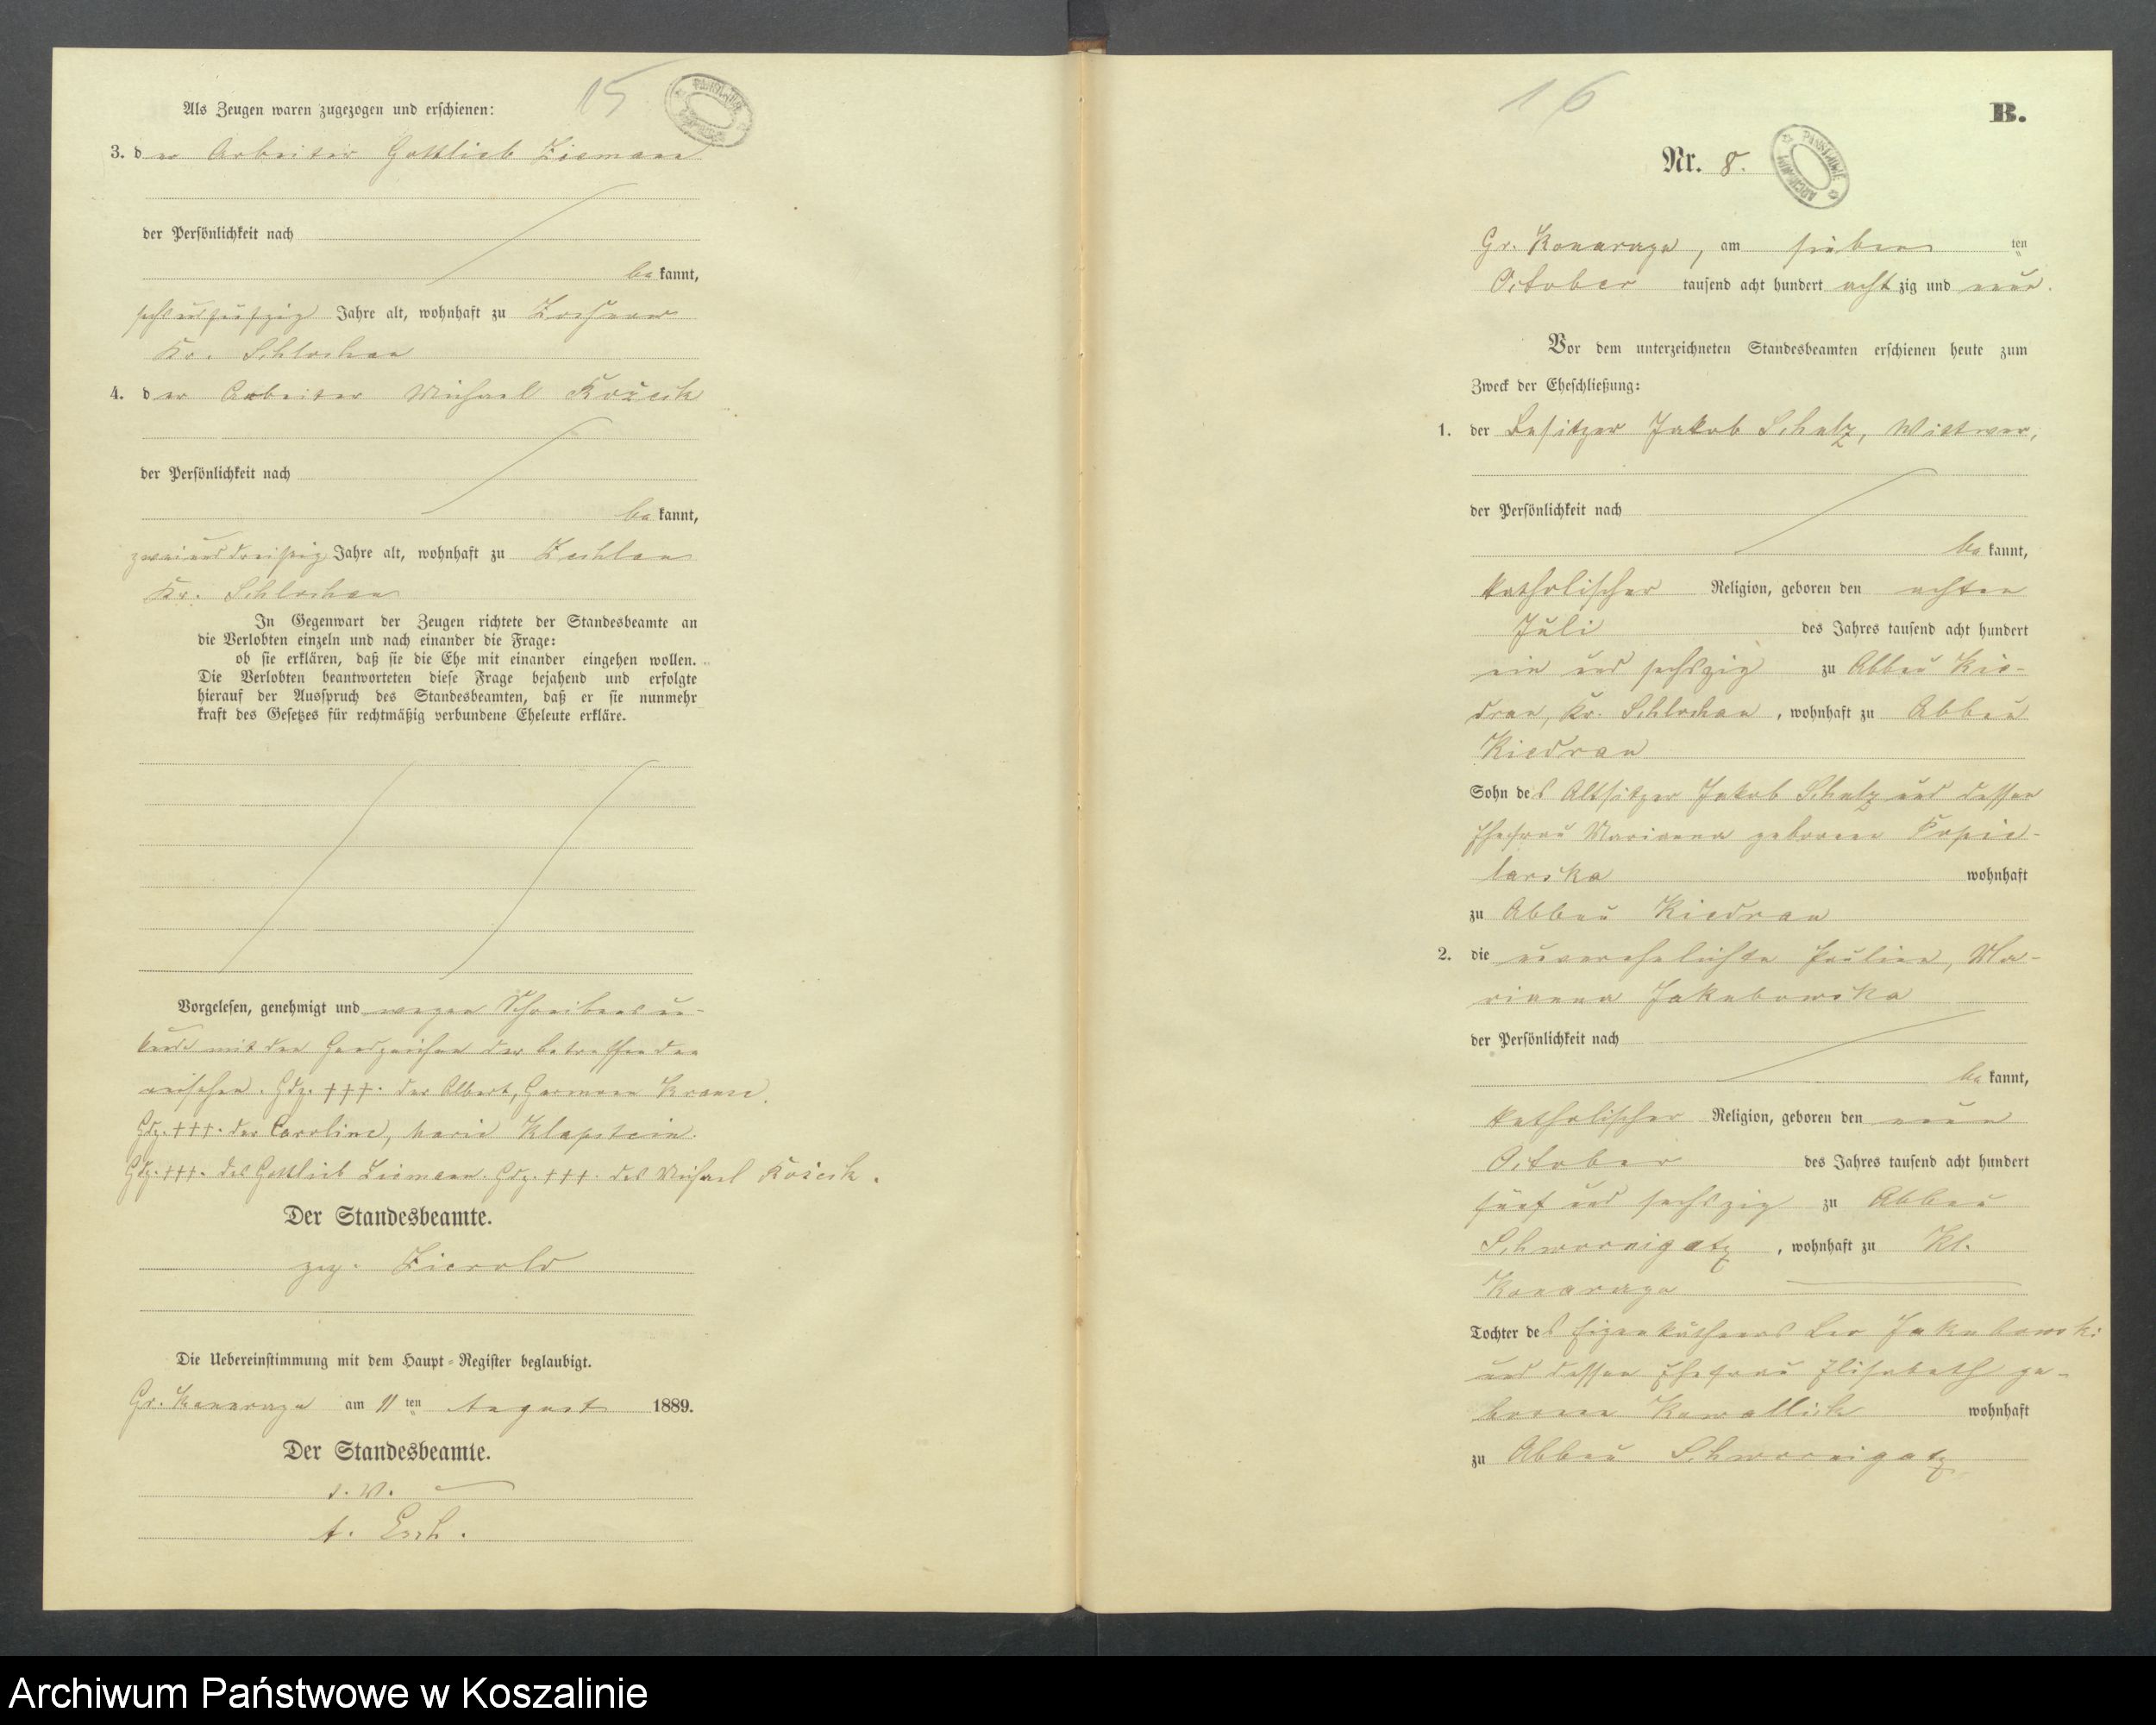 15
Als Zeugen waren zugezogen und erschienen:
3. der Arbeiter Gottlieb Ziemann
der Persönlichkeit nach
bekannt,
Jahre alt, wohnhaft zu
Kr. Schlochau
4. der Arbeiter Michael Kožcik
der Persönlichkeit nach
bekannt,
zweiunddreißig Jahre alt, wohnhaft zu Zechlau
Kr. Schlochau
In Gegenwart der Zeugen richtete der Standesbeamte an
die Verlobten einzeln und nach einander die Frage:
ob sie erklären, daß sie die Ehe mit einander eingehen wollen.
Die Verlobten beantworteten diese Frage bejahend und erfolgte
hierauf der Ausspruch des Standesbeamten, daß er sie nunmehr
kraft des Gesetzes für rechtmäßig verbundene Eheleute erkläre.
Vorgelesen, genehmigt und wegen Schreibensun-
kunde mit den Handzeichen der betreffenden
versehen. Hdz. +++. des Albert, Hermann Krause.
Hdz. +++. der Caroline, Marie Klapstein.
Hdz. +++. des Gottlieb Ziemann. Hdz. +++. des Michael Kožcik.
Der Standesbeamte.
gez. Zierold
Die Uebereinstimmung mit dem Haupt-Register beglaubigt.
Gr. Konarczyn am 11ten August 1889.
Der Standesbeamte.
i. V.
16
B.
PAŃSTWOWE ARCHIWUM
Nr. 8.
Gr. Konarczyn, am sieben ten
October tausend acht hundert achtzig und neun.
Vor dem unterzeichneten Standesbeamten erschienen heute zum
Zweck der Eheschließung:
1. der Besitzer Jakob Schulz, Wittwer,
der Persönlichkeit nach
bekannt,
katholischer Religion, geboren den achten
Juli des Jahres tausend acht hundert
ein und sechszig zu Abbau Kie-
drau, Kr. Schlochau, wohnhaft zu Abbau
Kiedrau
Sohn des Altsitzer Jakob Schulz und dessen
Ehefrau Marianna geborene Kopic-
larska wohnhaft
zu Abbau Kiedrau
2. die unverehelichte Pauline, Ma-
rianna Jakubowska
der Persönlichkeit nach
bekannt,
katholischer Religion, geboren den neun
October des Jahres tausend acht hundert
fünf und sechszig zu Abbau
Schwornigatz, wohnhaft zu Kl.
Konarczyn
Tochter des Eigenkäthners Leo Jakubowski
und dessen Ehefrau Elisabeth ge-
borene Kowallik wohnhaft
zu Abbau Schwornigatz
Archiwum Państwowe w Koszalinie